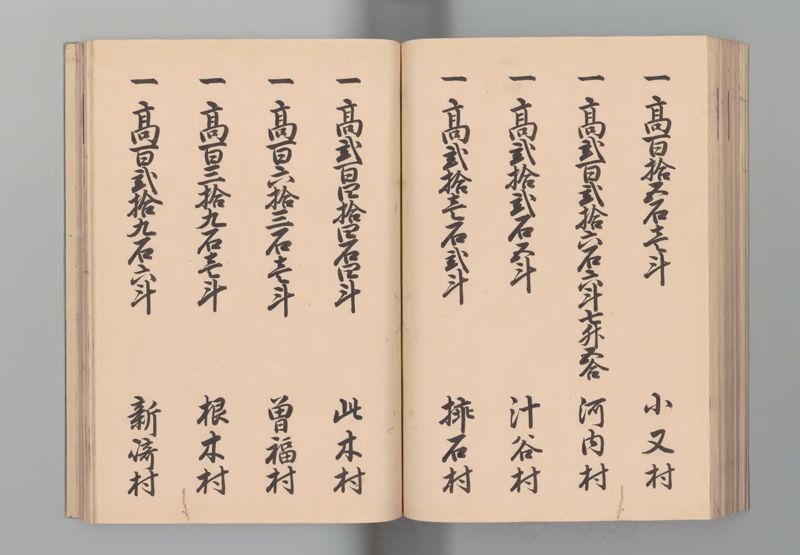 一 高百拾五石壱斗 小又村
一 高弐百弐拾六石六斗七升五合 河内村
一 高弐拾弐石五斗 汁谷村
一 高弐拾壱石弐斗 石村
一 高弐百四拾四石四斗 此木村
一 高百六拾三石壱斗 曽福村
一 高百三拾九石壱斗 根木村
一 高百弐拾九石六斗 新崎村